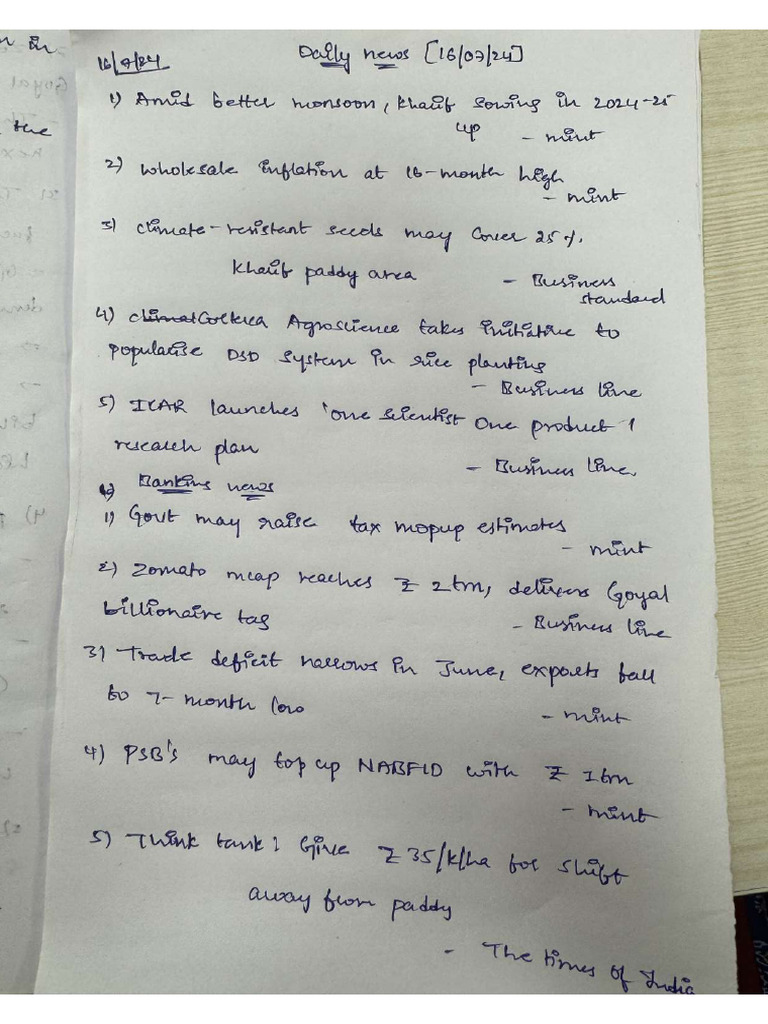 16/7/24
Daily news [16/07/24]
1) Amid better monsoon, kharif sowing in 2024-25
up - mint
2) Wholesale inflation at 16-month high
- mint
3) climate-resistant seeds may cover 25%
kharif paddy area - Business
standard
4) Corteva Agroscience takes initiative to
popularise DSD system in rice planting
- Business line
5) ICAR launches 'one scientist One product'
research plan - Business line.
Banking news
1) Govt may raise tax mopup estimates
- mint
2) Zomato mcap reaches ₹ 2trn, delivers Goyal
billionaire tag - Business line
3) Trade deficit narrows in June, exports fall
to 7-month low - mint
4) PSB's may top up NABFID with ₹ 1trn
- mint
5) Think tank: Give ₹ 35/k/ha for shift
away from paddy
- The times of India